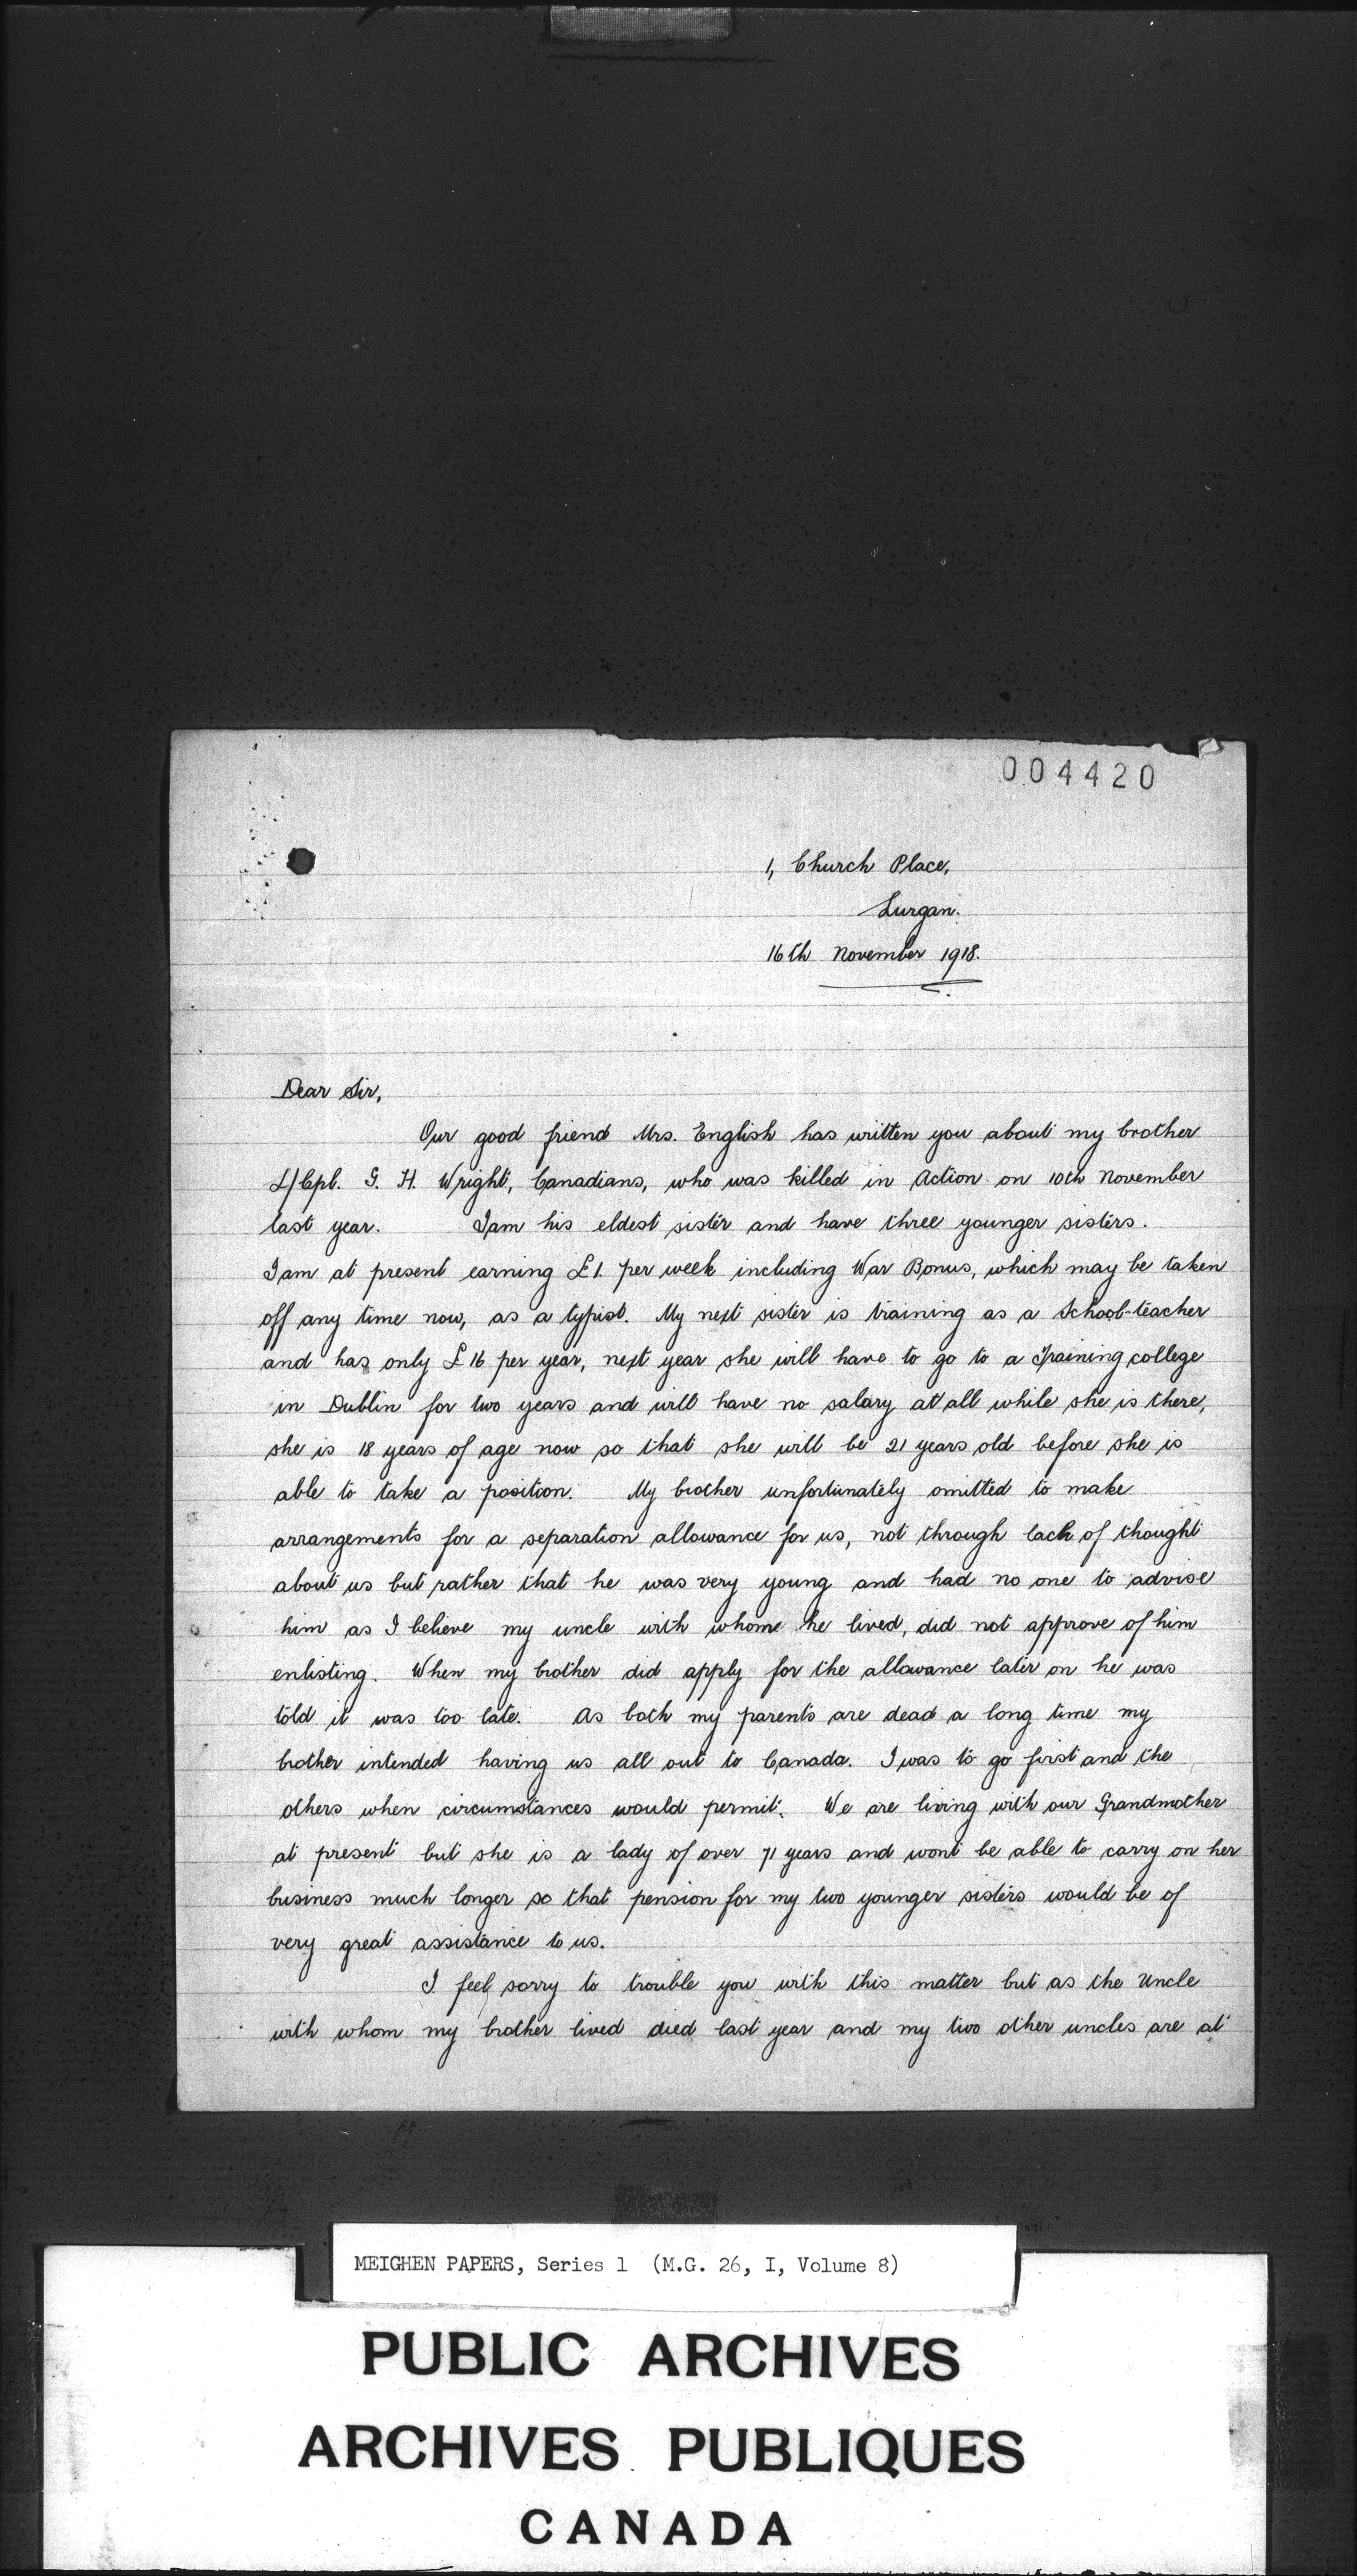 004420
1, Church Place,
Lurgan.
16th November 1918.
Dear Sir,
Our good friend Mrs. English has written you about my brother
L/Cpl. G. H. Wright, Canadians, who was killed in Action on 10th November
last year. I am his eldest sister and have three younger sisters.
I am at present earning £1. per week including War Bonus, which may be taken
off any time now, as a typist. My next sister is training as a School-teacher
and has only £16 per year, next year she will have to go to a Training college
in Dublin for two years and will have no salary at all while she is there,
she is 18 years of age now so that she will be 21 years old before she is
able to take a position. My brother unfortunately omitted to make
arrangements for a separation allowance for us, not through lack of thought
about us but rather that he was very young and had no one to advise
him as I believe my uncle with whome he lived, did not approve of him
enlisting. When my brother did apply for the allowance later on he was
told it was too late. As both my parents are dead a long time my
brother intended having us all out to Canada. I was to go first and the
others when circumstances would permit. We are living with our Grandmother
at present but she is a lady of over 71 years and wont be able to carry on her
business much longer so that pension for my two younger sisters would be of
very great assistance to us.
I feel sorry to trouble you with this matter but as the Uncle
with whom my brother lived died last year and my two other uncles are at
MEIGHEN PAPERS, Series 1 (M.G. 26, I, Volume 8)
PUBLIC ARCHIVES
ARCHIVES PUBLIQUES
CANADA